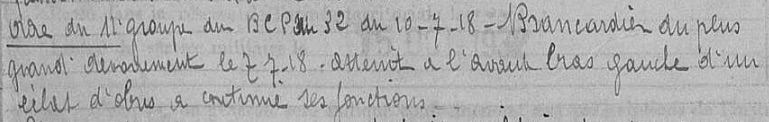 Ordre du 11e groupe du BCP au 32 du 10-7-18 - Brancardier du plus
grand dévouement le 7-7-18. atteint à l'avant bras gauche d'un
éclat d'obus a continué ses fonctions -